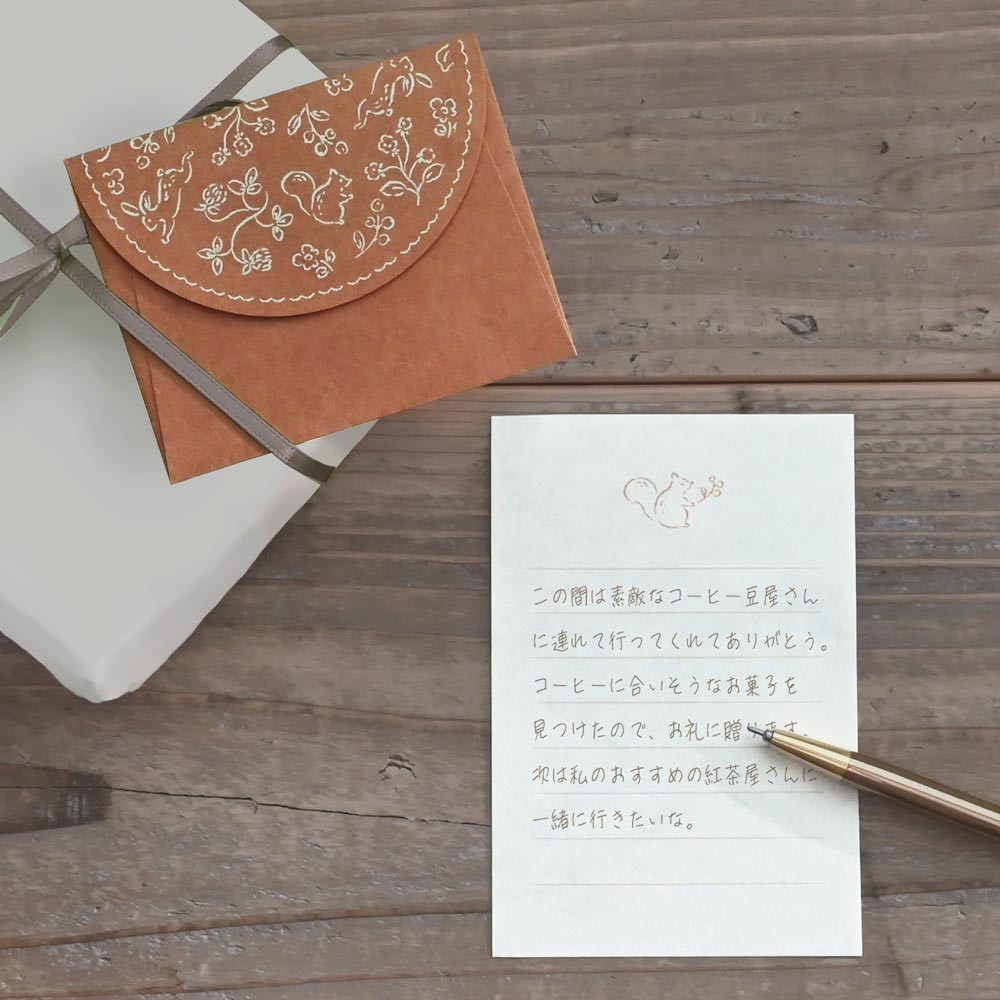 この間は素敵なコーヒー豆屋さん
に連れて行ってくれてありがとう。
コーヒーに合いそうなお菓子を
見つけたので、お礼に贈ります。
次は私のおすすめの紅茶屋さんに
一緒に行きたいな。